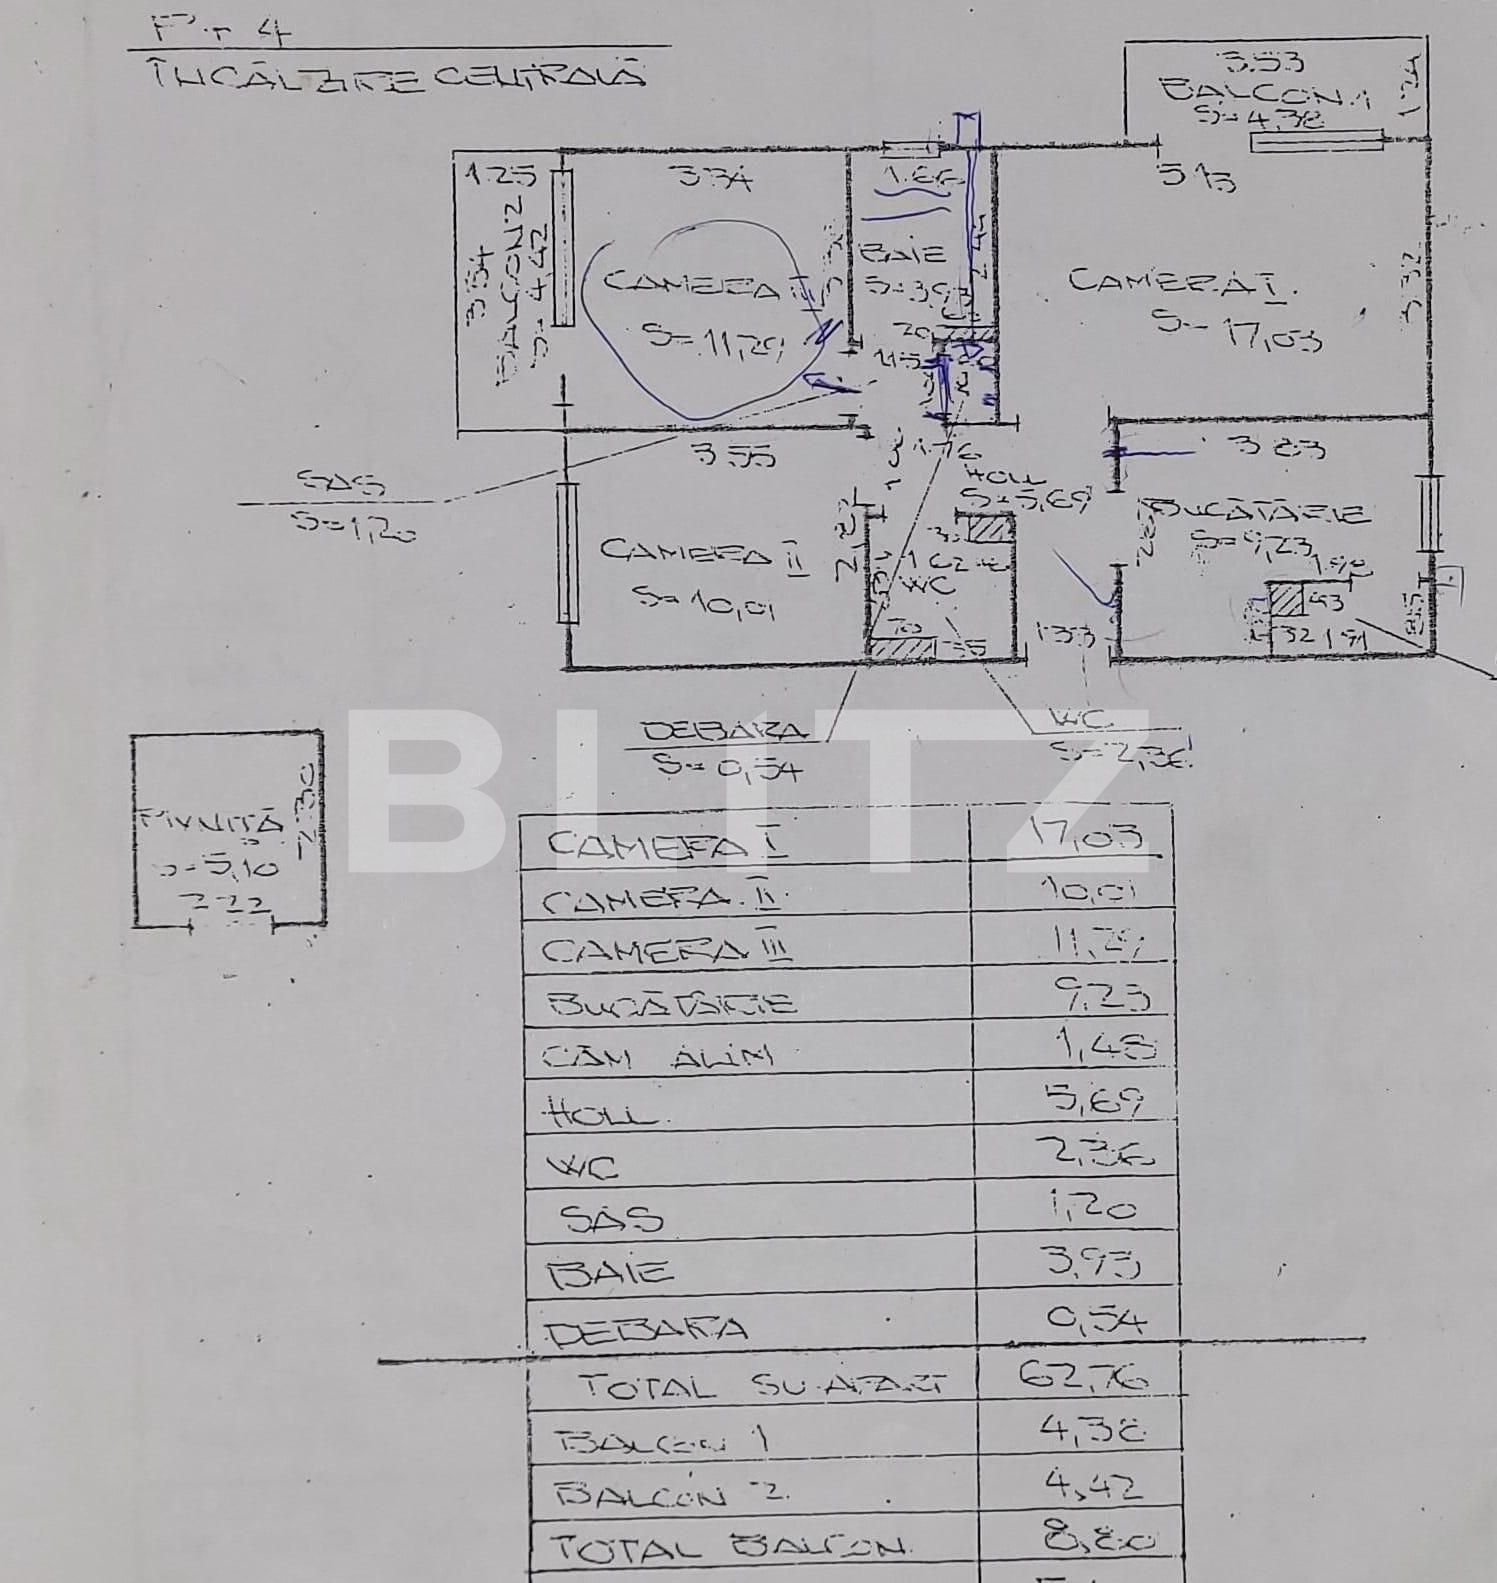 P+4
ÎNCĂLZIRE CENTRALĂ
3.53
BALCON 1
S=4,38
1.24
1.25
3.34
1.66
5.13
3.54
BALCON 2
S=4,42
CAMERA III
S=11,29
BAIE
S=3,93
2.44
CAMERA I
S=17,03
3.32
20
1.15
3.55
1.76
3 83
SAS
S=1,20
HOLL
S=5,69
BUCĂTĂRIE
S=9,23
CAMERA II
S=10,01
2,82
1 62
WC
70
35
133
93
32 1 91
85
DEBARA
S=0,54
WC
S=2,36
PIVNIȚĂ
S=5,10
2.22
2.30
BLITZ
CAMERA I 17,03
CAMERA II 10,01
CAMERA III 11,29
BUCĂTĂRIE 9,23
CĂM ALIM 1,48
HOLL 5,69
WC 2,36
SAS 1,20
BAIE 3,93
DEBARA 0,54
TOTAL SU APART 62,76
BALCON 1 4,38
BALCON 2 4,42
TOTAL BALCON 8,80